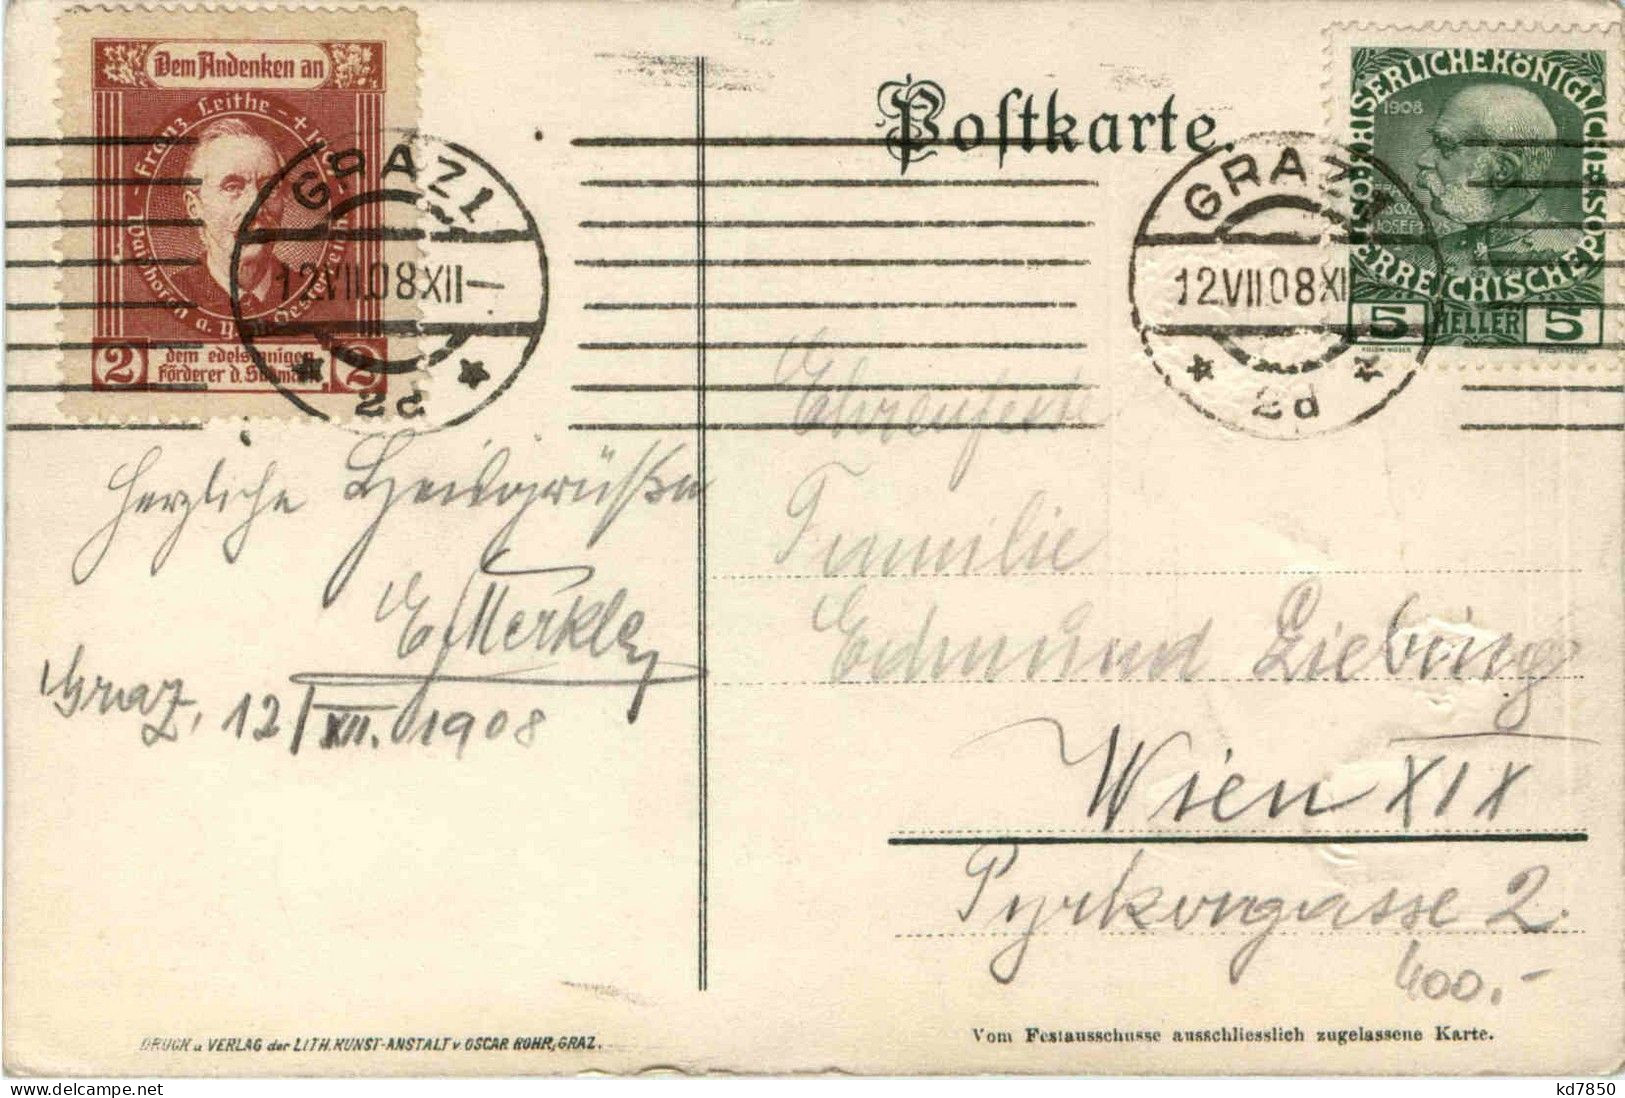 Dem Andenken an
Franz Leithe
2 dem edelsinnigen 2
Förderer d. Südmark.
Postkarte.
1908
KAISERLICHE KÖNIGLICHE
ÖSTERREICHISCHE POST
5 HELLER 5
GRAZ 1
12 VII 08 XII
2d
GRAZ 1
12 VII 08 XI
2d
Herzliche Heilsgrüße
E. Merkle
Graz, 12/XII. 1908
Familie
Edmund Liebing
Wien XIX
Pyrkergasse 2.
400.-
DRUCK u VERLAG der LITH. KUNST-ANSTALT v. OSCAR ROHR, GRAZ.
Vom Festausschusse ausschliesslich zugelassene Karte.
kd7850